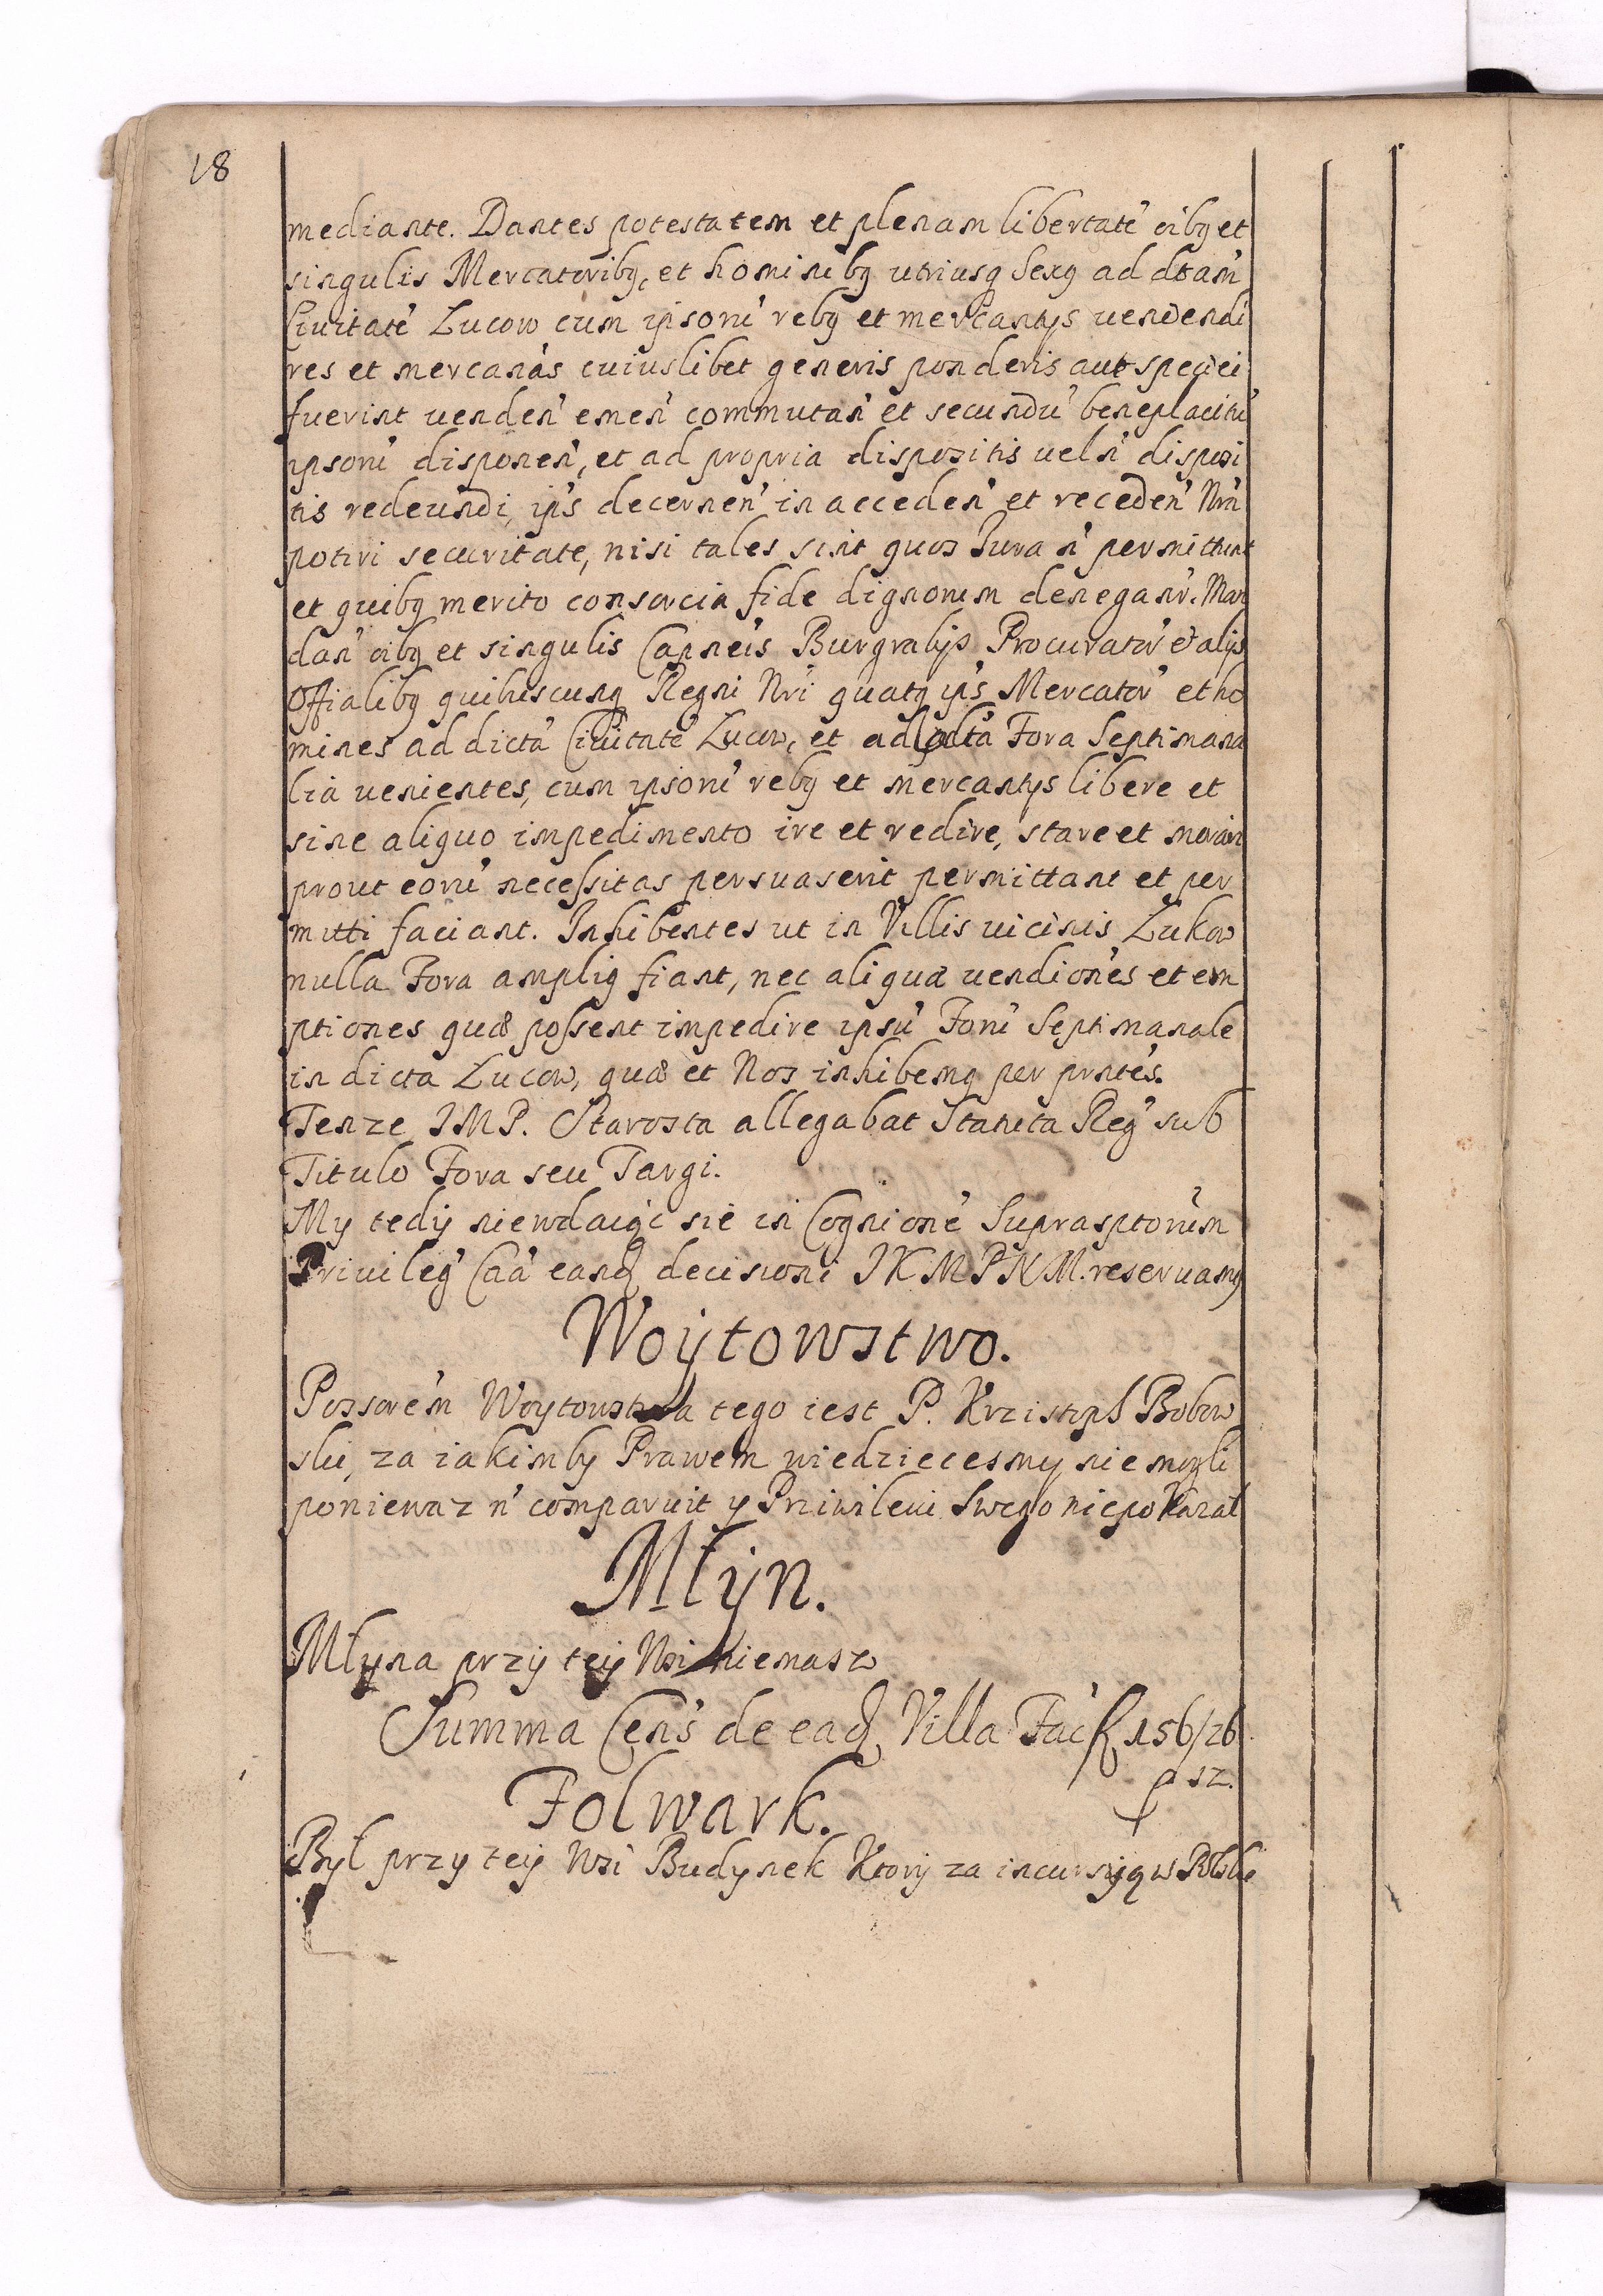 18
mediante. Dantes potestatem et plenam libertatē oibꝫ et
singulis Mercatoribꝫ, et hominibꝫ utriusqꝫ Sexꝫ ad dictam̄
Ciuitatē Lucow cum ipsorū rebꝫ et mercantys uendendi
res et mercan̄as cuiuslibet generis ponderis aut speciei
fuerint uenden̄ emen̄ commutan̄ et secundū beneplacitū
ipsorū disponen̄, et ad propria dispositis uel n̄ disposi
tis redeundi, ip̄s decernen̄ in acceden̄ et receden̄ Nr̄a
potiri securitate, nisi tales sint quos Jura n̄ permittunt
et quibꝫ merito consorcia fide dignorum denegan̄r. Man
dan̄ oibꝫ et singulis Capn̄eis Burgrabijs Procurator̄ et alijs
Offialibꝫ quibuscunqꝫ Regni Nr̄i quatꝫ ip̄s Mercator̄ et ho
mines ad dictā Ciuitatē Lucow, et ad dictā Fora Septimana
lia uenientes, cum ipsorū rebꝫ et mercantys libere et
sine aliquo impedimento ire et redire, stare et morari
prout eorū necessitas persuaserit permittant et per
mitti faciant. Inhibentes ut in Villis uicinis Lukow
nulla Fora ampliꝫ fiant, nec aliquæ uendiōnes et em
ptiones quæ possent impedire ipsū Forū Septimanale
in dicta Lucow, quæ et Nos inhibemꝫ per prn̄tes.
Tenze IMP. Starosta allegabat Statuta Reḡ sub
Titulo Fora seu Targi.
My tedÿ niewdaiąc sie in Cogniōnē Suprasptorum
Priuileḡ Cāā eandꝫ decisioni JKMPNM. reseruamꝫ
Woÿtowstwo.
Possorēm Woytowstwa tego iest P. Krzisztoph Bobow
ski, za iakimby Prawem wiedziecesmy nie mogli
poniewaz n̄ comparuit y Priwileiu Swego niepokazal
Młÿn.
Młÿna przÿ teÿ Wsi niemasz
Summa Cens̄ de eadꝫ Villa Fac̄ fl 156/26
sz.
Folwark.
Bÿł przy teÿ Wsi Budynek Ktorÿ za incursÿą w Polske